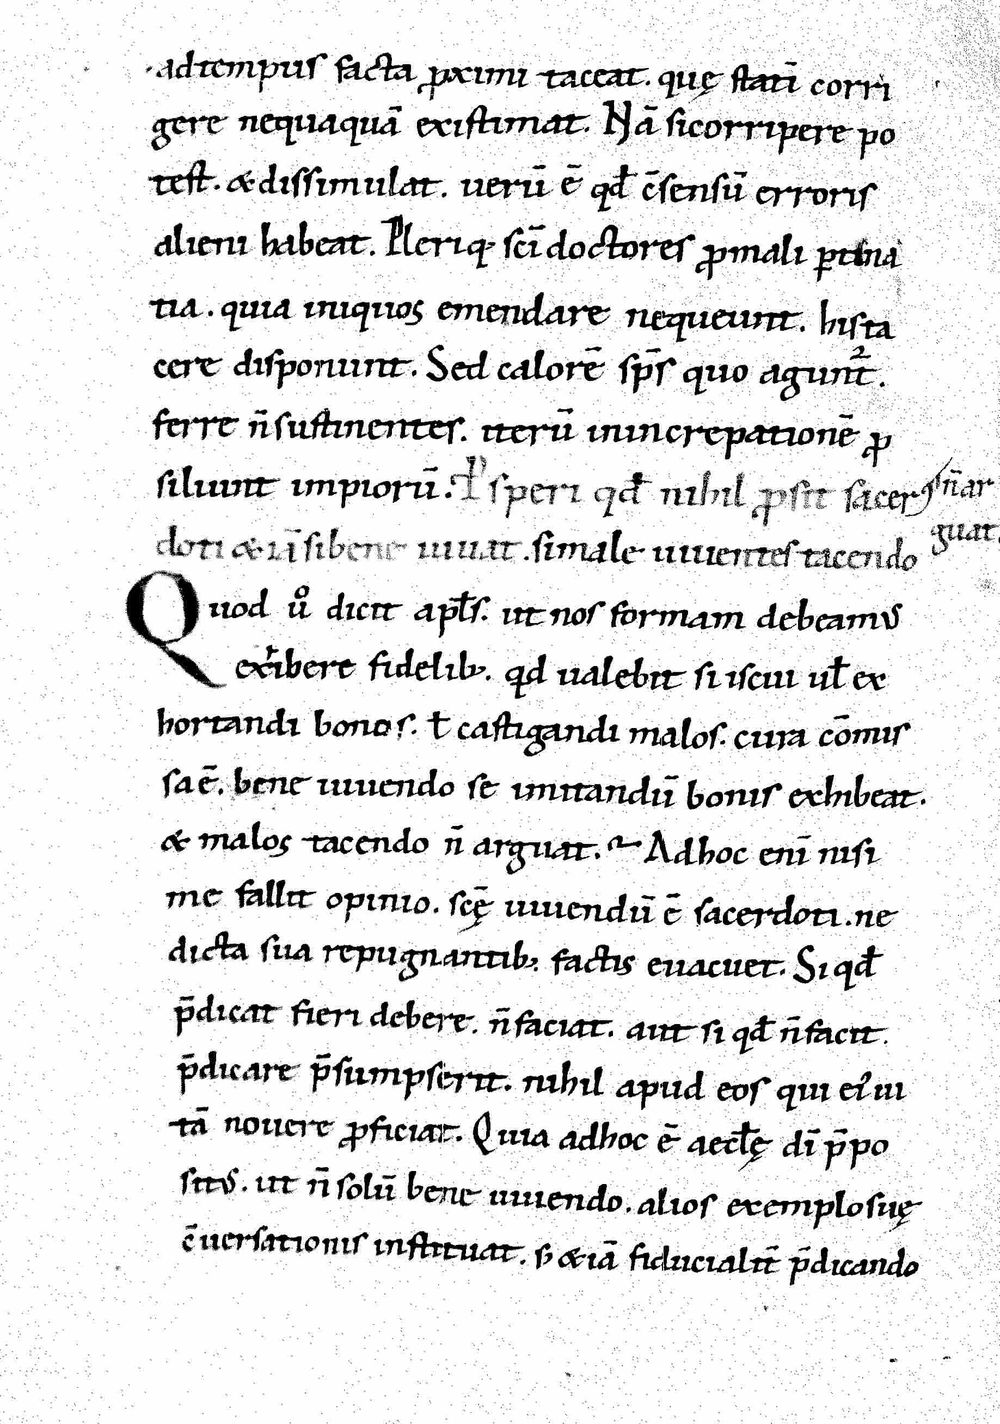 adtempus facta ꝓximi taceat. quę statī corri
gere nequaquā existimat. Nā sicorripere po
test. & dissimulat. uerū ē qđ c̄sensū erroris
alieni habeat. Pleriq; sc̄i doctores ꝓmali ꝑtina
tia. quia iniquos emendare nequeunt. hista
cere disponunt. Sed calorē sp̄s quo agunt᷑.
ferre n̄ sustinentes. iterū inincrepationē ꝓ
siliunt impiorū.
speri qđ nihil ꝓsit sacer
doti &iā sibene uiuat. simale uiuentes tacendo
n̄ar
guat.
Quod ům dicit apłs. ut nos formam debeamus
exibere fidelib;. qđ ualebit si iscui uł ex
hortandi bonos. ł castigandi malos. cura cōmis
sa ē. bene uiuendo se imitandū bonis exhibeat.
& malos tacendo n̄ arguat. Adhoc enī nisi
me fallit opinio. sc̄ę uiuendū ē sacerdoti. ne
dicta sua repugnantib; factis euacuet. Si qđ
p̄dicat fieri debere. n̄ faciat. aut si qđ n̄ facit.
p̄dicare p̄sumpserit. nihil apud eos qui ei᷑ ui
tā nouere ꝓficiat. Quia adhoc ē aecłę dī p̄po
situs. ut n̄ solū bene uiuendo. alios exemplo suę
c̄uersationis instituat. s; &iā fiducialit̄ p̄dicando